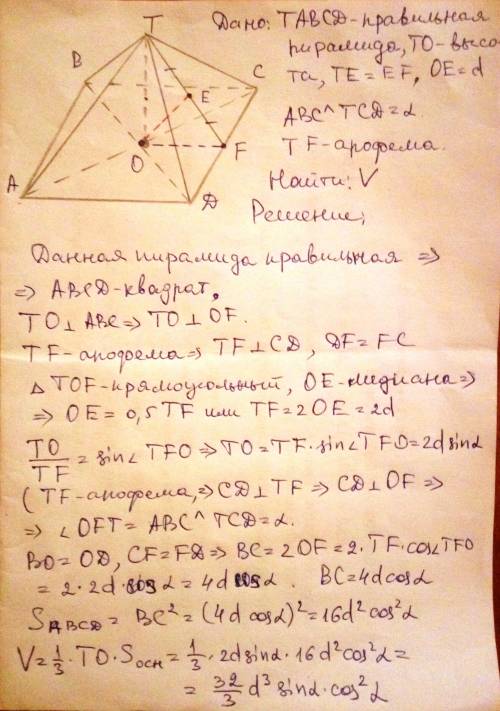 T
B
C
E
O
F
A
D
Дано: TABCD-правильная
пирамида, TO-высо-
та, TE=EF, OE=d
ABC^TCD=α.
TF-апофема.
Найти: V
Решение:
Данная пирамида правильная ⇒
⇒ ABCD-квадрат.
TO⊥ABC⇒ TO⊥OF.
TF-апофема⇒ TF⊥CD, DF=FC
△ TOF-прямоугольный, OE-медиана⇒
⇒ OE=0,5TF или TF=2OE=2d
TO/TF=sin∠TFO⇒TO=TF·sin∠TFO=2dsinα
(TF-апофема,⇒CD⊥TF⇒CD⊥OF⇒
⇒ ∠OFT=ABC^TCD=α.
BO=OD, CF=FD⇒ BC=2OF=2·TF·cos∠TFO
=2·2d·cosα=4dcosα. BC=4dcosα
S_ABCD=BC²=(4d cosα)²=16d²cos²α
V=1/3·TO·Sосн=1/3·2dsinα·16d²cos²α=
=32/3 d³ sinα·cos²α